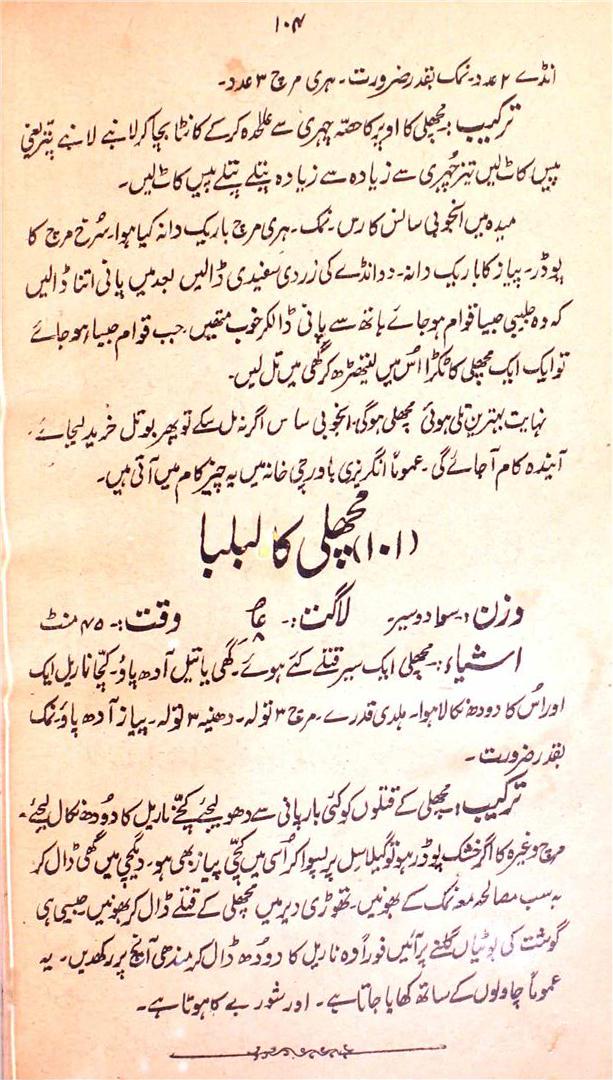 ۱۰۴
انڈے ۲ عدد۔ نمک بقدر ضرورت۔ ہری مرچ ۳ عدد۔
ترکیب:۔ مچھلی کا اوپر کا حصہ چھری سے علٰحدہ کر کے کانٹا بچا کر لانبے لانبے پتر یعنی
پیس کاٹ لیں تیز چُھری سے زیادہ سے زیادہ پتلے پتلے پیس کاٹ لیں۔
میدہ میں انجوبی سالس کا رس۔ نمک۔ ہری مرچ باریک دانہ کیا ہوا۔ سُرخ مرچ کا
پوڈر۔ پیاز کا باریک دانہ۔ دو انڈے کی زردی سفیدی ڈالیں بعد میں پانی اتنا ڈالیں
کہ وہ جلیبی جیسا قوام ہو جائے ہاتھ سے پانی ڈالکر خوب متھیں۔ جب قوام جیسا ہو جائے
تو ایک ایک مچھلی کا ٹکڑا اُس میں لتھڑ کر گھی میں تل لیں۔
نہایت بہترین تلی ہوئی مچھلی ہوگی۔ انجوبی ساس اگر نہ مل سکے تو پھر بوتل خرید لیجائے۔
آیندہ کام آجائے گی۔ عموماً انگریزی باورچی خانہ میں یہ چیز کام میں آتی ہیں۔
(۱۰۱) مچھلی کا لبلبا
وزن:۔ سوا دو سیر لاگت:۔ وقت:۔ ۴۵ منٹ
اشیاء:۔ مچھلی ایک سیر قتلے کئے ہوئے۔ گھی یا تیل آدھ پاؤ۔ کچا ناریل ایک
اور اُس کا دودھ نکالا ہوا۔ ہلدی قدرے۔ مرچ ۳ تولہ۔ دھنیہ ۳ تولہ۔ پیاز آدھ پاؤ۔ نمک
بقدر ضرورت۔
ترکیب:۔ مچھلی کے قتلوں کو کئی بار پانی سے دھو لیجئے کچے ناریل کا دودھ نکال لیجئے۔
مرچ وغیرہ کا اگر خشک پوڈر ہو تو گیلا سِل پر پسوا کر اُسی میں کچی پیاز بھی ہو۔ دیگچی میں گھی ڈال کر
یہ سب مصالحہ معہ نمک کے بھونیں۔ تھوڑی دیر میں مچھلی کے قتلے ڈال کر بھونیں جیسی ہی
گوشت کی بوٹیاں گلنے پر آئیں فوراً وہ ناریل کا دودھ ڈال کر مندھی آنچ پر رکھدیں۔ یہ
عموماً چاولوں کے ساتھ کھایا جاتا ہے۔ اور شوربے کا ہوتا ہے۔